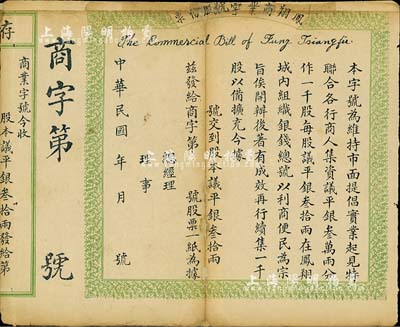 鳳翔商業字號股份票
The Commercial Bill of Fung Tsiangfu.
本字號為維持市面提倡實業起見特
聯合各行商人集資議平銀叁萬兩分
作一千股每股議平銀叁拾兩在鳳翔
城內組織銀錢總號以利商便民為宗
旨俟開辦後著有成效再行續集一千
股以備擴充今據
號交到股本議平銀叁拾兩
茲發給商字第 號股票一紙為據
總經理
理事
中華民國 年 月 號
商字第 號
存
商業字號今收
股本議平銀叁拾兩發給第
上海陽明拍賣